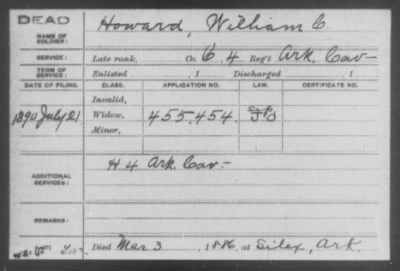 DEAD
NAME OF SOLDIER: Howard, William C.
SERVICE: Late rank, Co. G. 4 Reg't Ark Cav-
TERM OF SERVICE: Enlisted , 1 Discharged , 1
DATE OF FILING. CLASS. APPLICATION NO. LAW. CERTIFICATE NO.
Invalid,
1890 July 21 Widow, 455.454
Minor,
ADDITIONAL SERVICES: H 4 Ark Cav-
REMARKS:
Died Mar 3, 1886, at Silex, Ark.